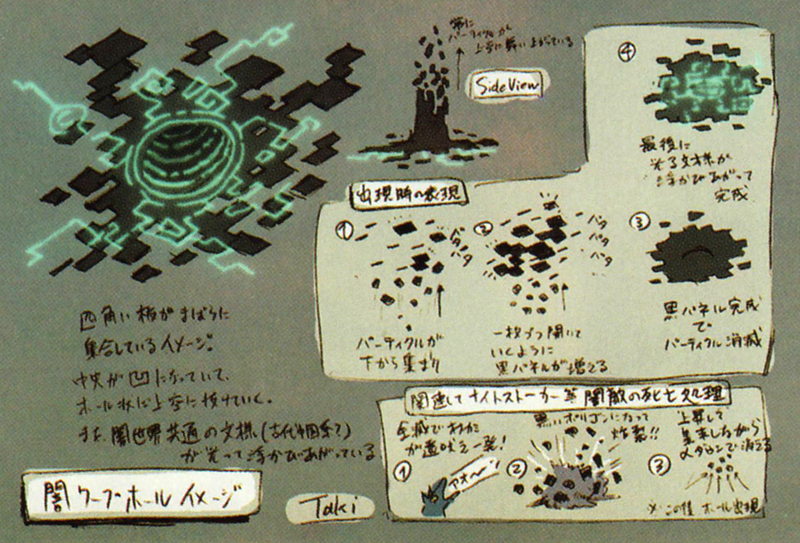 常に
パーティクルが
上空に舞い上がっている
SideView
④
最後に
光る文様が
浮かびあがって
完成
出現時の表現
①
バタ
バタ
バタ
パーティクルが
下から集まり
②
バタ
バタ
バタ
一枚づつ開いて
いくように
黒パネルが増える
③
黒パネル完成
で
パーティクル消滅
四角い板がまばらに
集合しているイメージ。
中央が凹になっていて、
ホール状に上空に抜けていく。
また、闇世界共通の文様(古代中国系?)
が光って浮かびあがっている
闇ワープホールイメージ
Taki
関連してナイトストーカー等 闇敵の死亡処理
全滅で
が遠吠え一発!
①
アオーン
黒いポリゴンになって
炸裂!!
②
上昇して
集束しながら
αダウンで消える
③
※この後 ホール出現